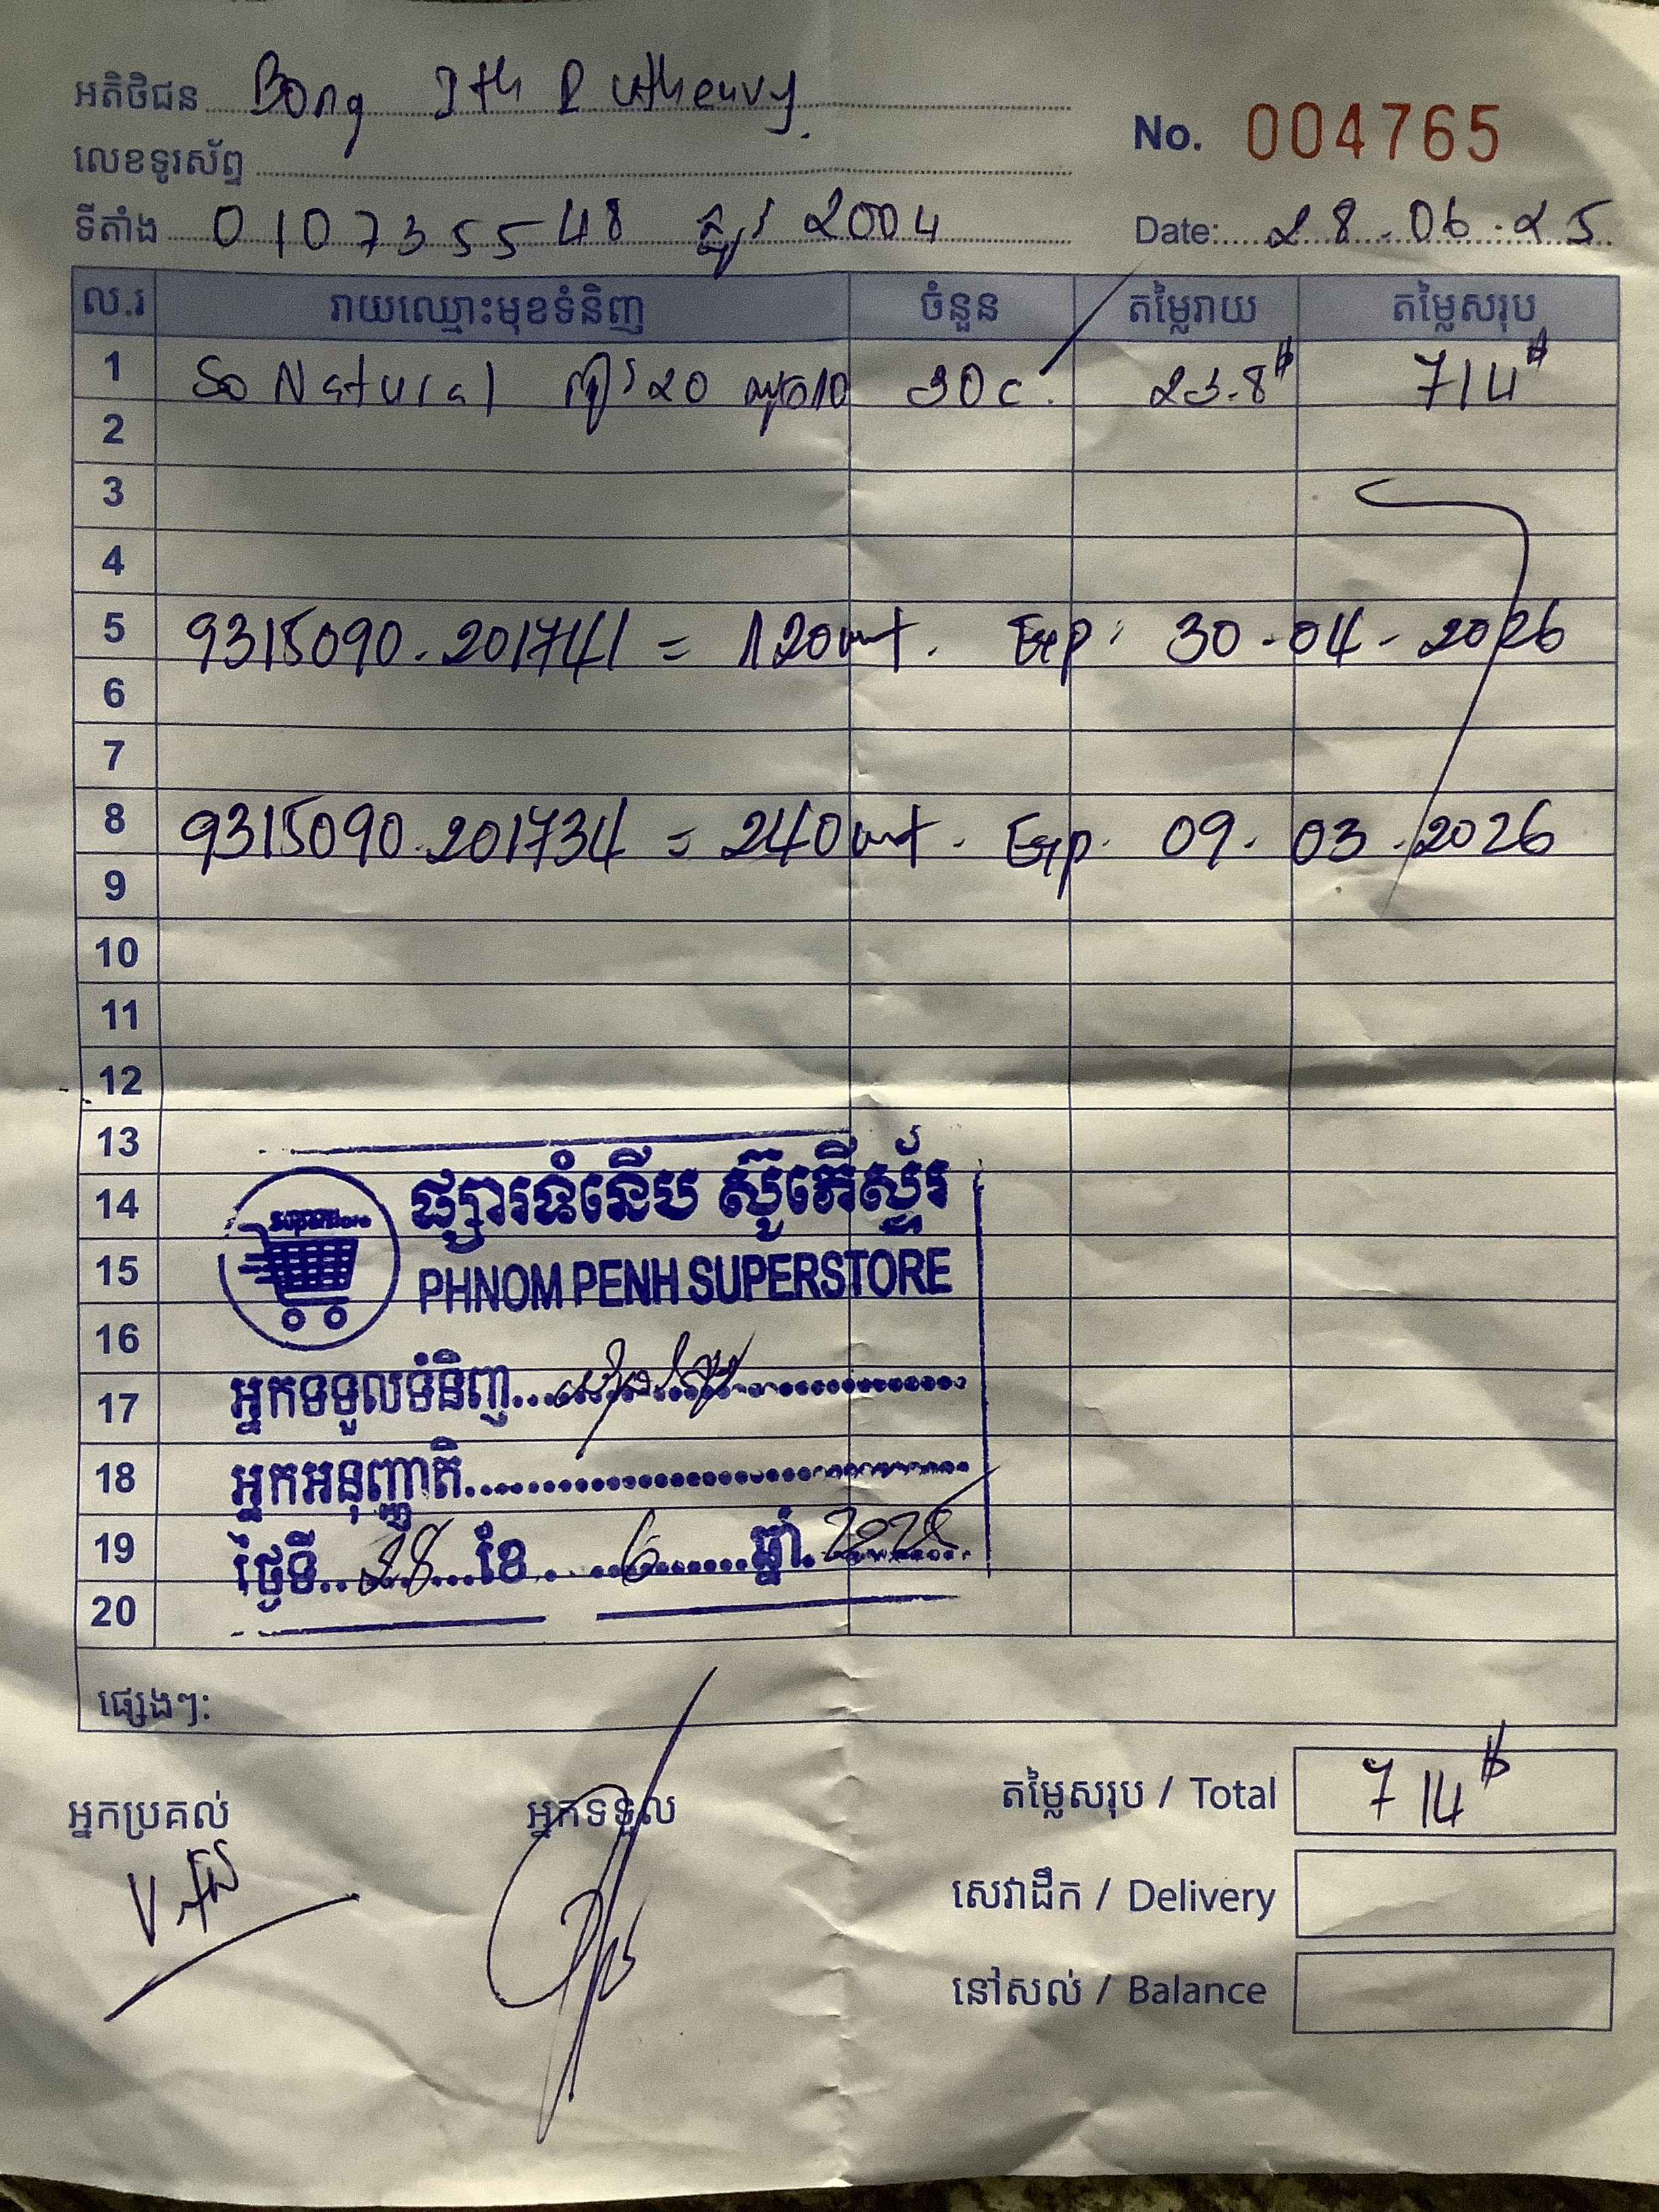 អតិថិជន Bong
No. 004765
លេខទូរស័ព្ទ
ទីតាំង 010735548 ផ្លូវ 2004
Date: 28.06.25
ល.រ រាយឈ្មោះមុខទំនិញ ចំនួន តម្លៃរាយ តម្លៃសរុប
1 So Natural 20 10 30c 23.8$ 714$
2
3
4
5 9315090.201741 = 120 Exp: 30-04-2026
6
7
8 9315090.201734 = 240 Exp. 09.03.2026
9
10
11
12
13
14
15
16
17
18
19
20
Superstore
ផ្សារទំនើប ស៊ូភើស្ទ័រ
PHNOM PENH SUPERSTORE
អ្នកទទួលទំនិញ
អ្នកអនុញ្ញាតិ
ថ្ងៃទី 28 ខែ 6 ឆ្នាំ 2025
ផ្សេងៗ:
អ្នកប្រគល់ អ្នកទទួល
តម្លៃសរុប / Total 714$
សេវាដឹក / Delivery
នៅសល់ / Balance